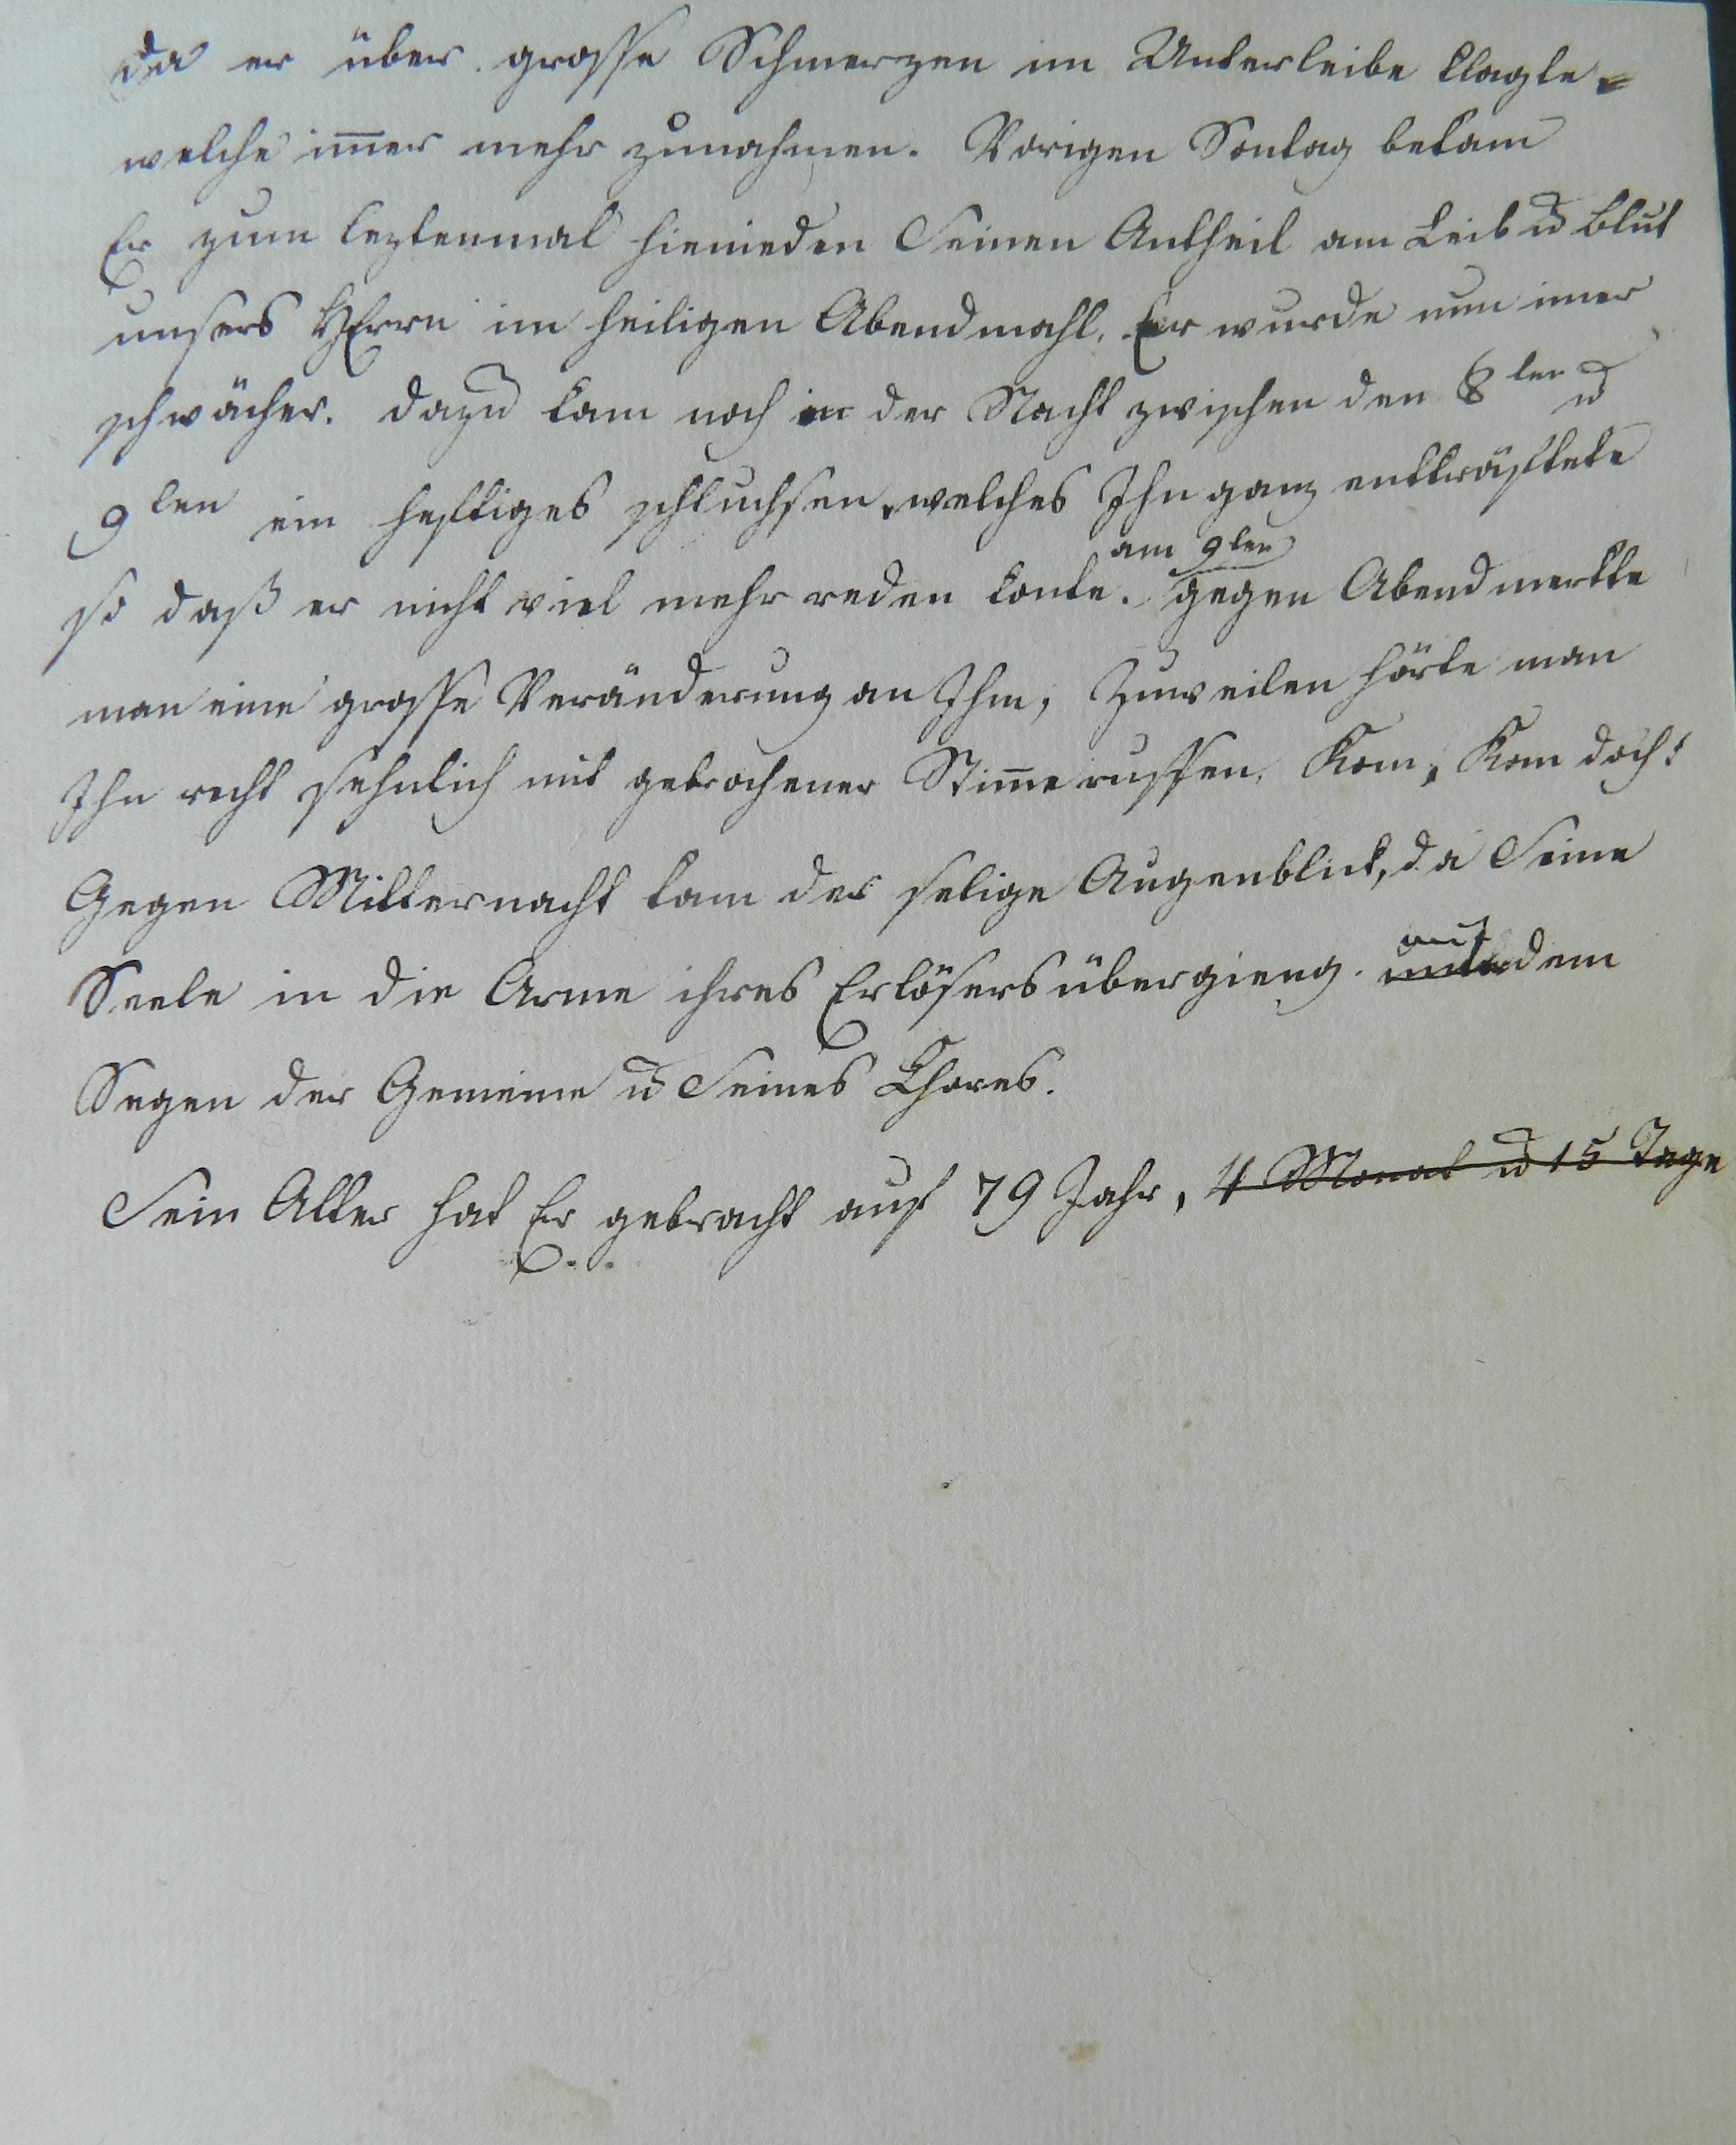 da er über grosse Schmerzen im Unterleibe klagte,
welche im̅er mehr zunahmen. Vorigen Sontag bekam
Er zum leztenmal hienieden Seinen Antheil am Leib u Blut
unsers HErrn im heiligen Abendmahl. Er wurde nun imer
schwächer. dazu kam noch in der Nacht zwischen den 8ten u
9ten ein heftiges schluchsen, welches Ihn ganz entkräftete
am 9ten
so daß er nicht viel mehr reden konte. gegen Abend merkte
man eine grosse Veränderung an Ihm, Zuweilen hörte man
Ihn recht sehnlich mit gebrochener Stim̅e ruffen, Kom, Kom doch!
Gegen Mitternacht kam der selige Augenblick, da Seine
mit
Seele in die Arme ihres Erlösers übergieng. unter dem
Segen der Gemeine u Seines Chores.
Sein Alter hat Er gebracht auf 79 Jahr, 4 Monat u 15 Tage